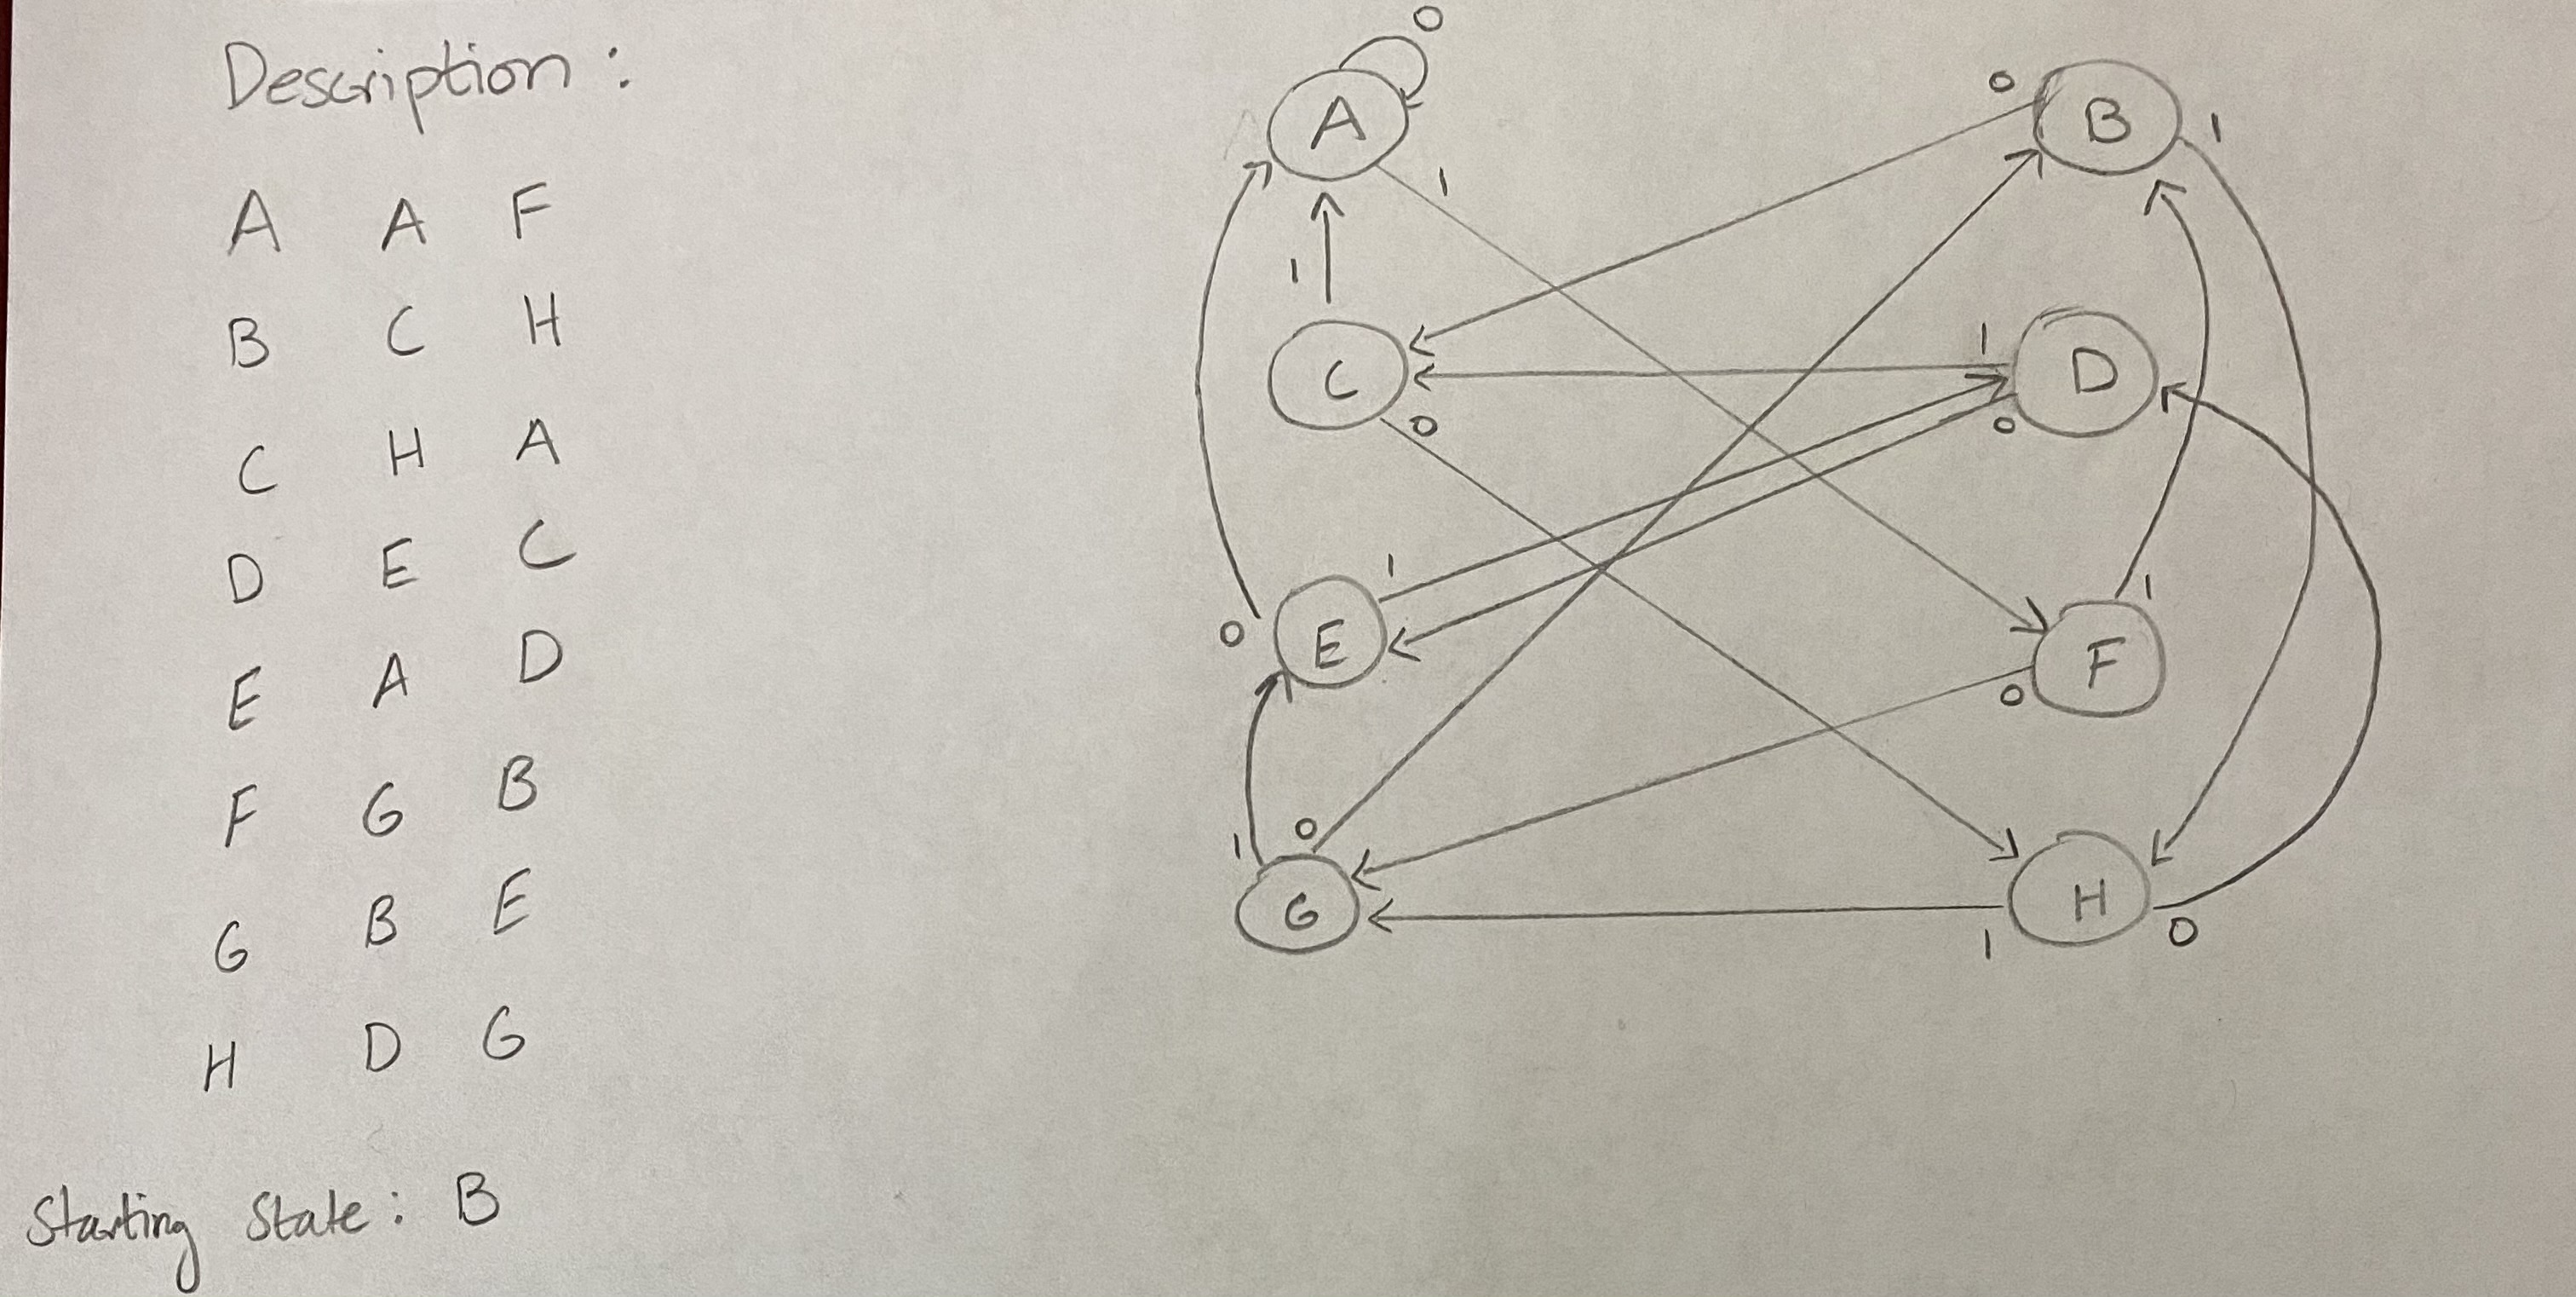 Description :
A A F
B C H
C H A
D E C
E A D
F G B
G B E
H D G
Starting State : B
0
A
1
0
B
1
1
C
0
1
D
0
1
0
E
1
F
0
1
0
G
H
1
0